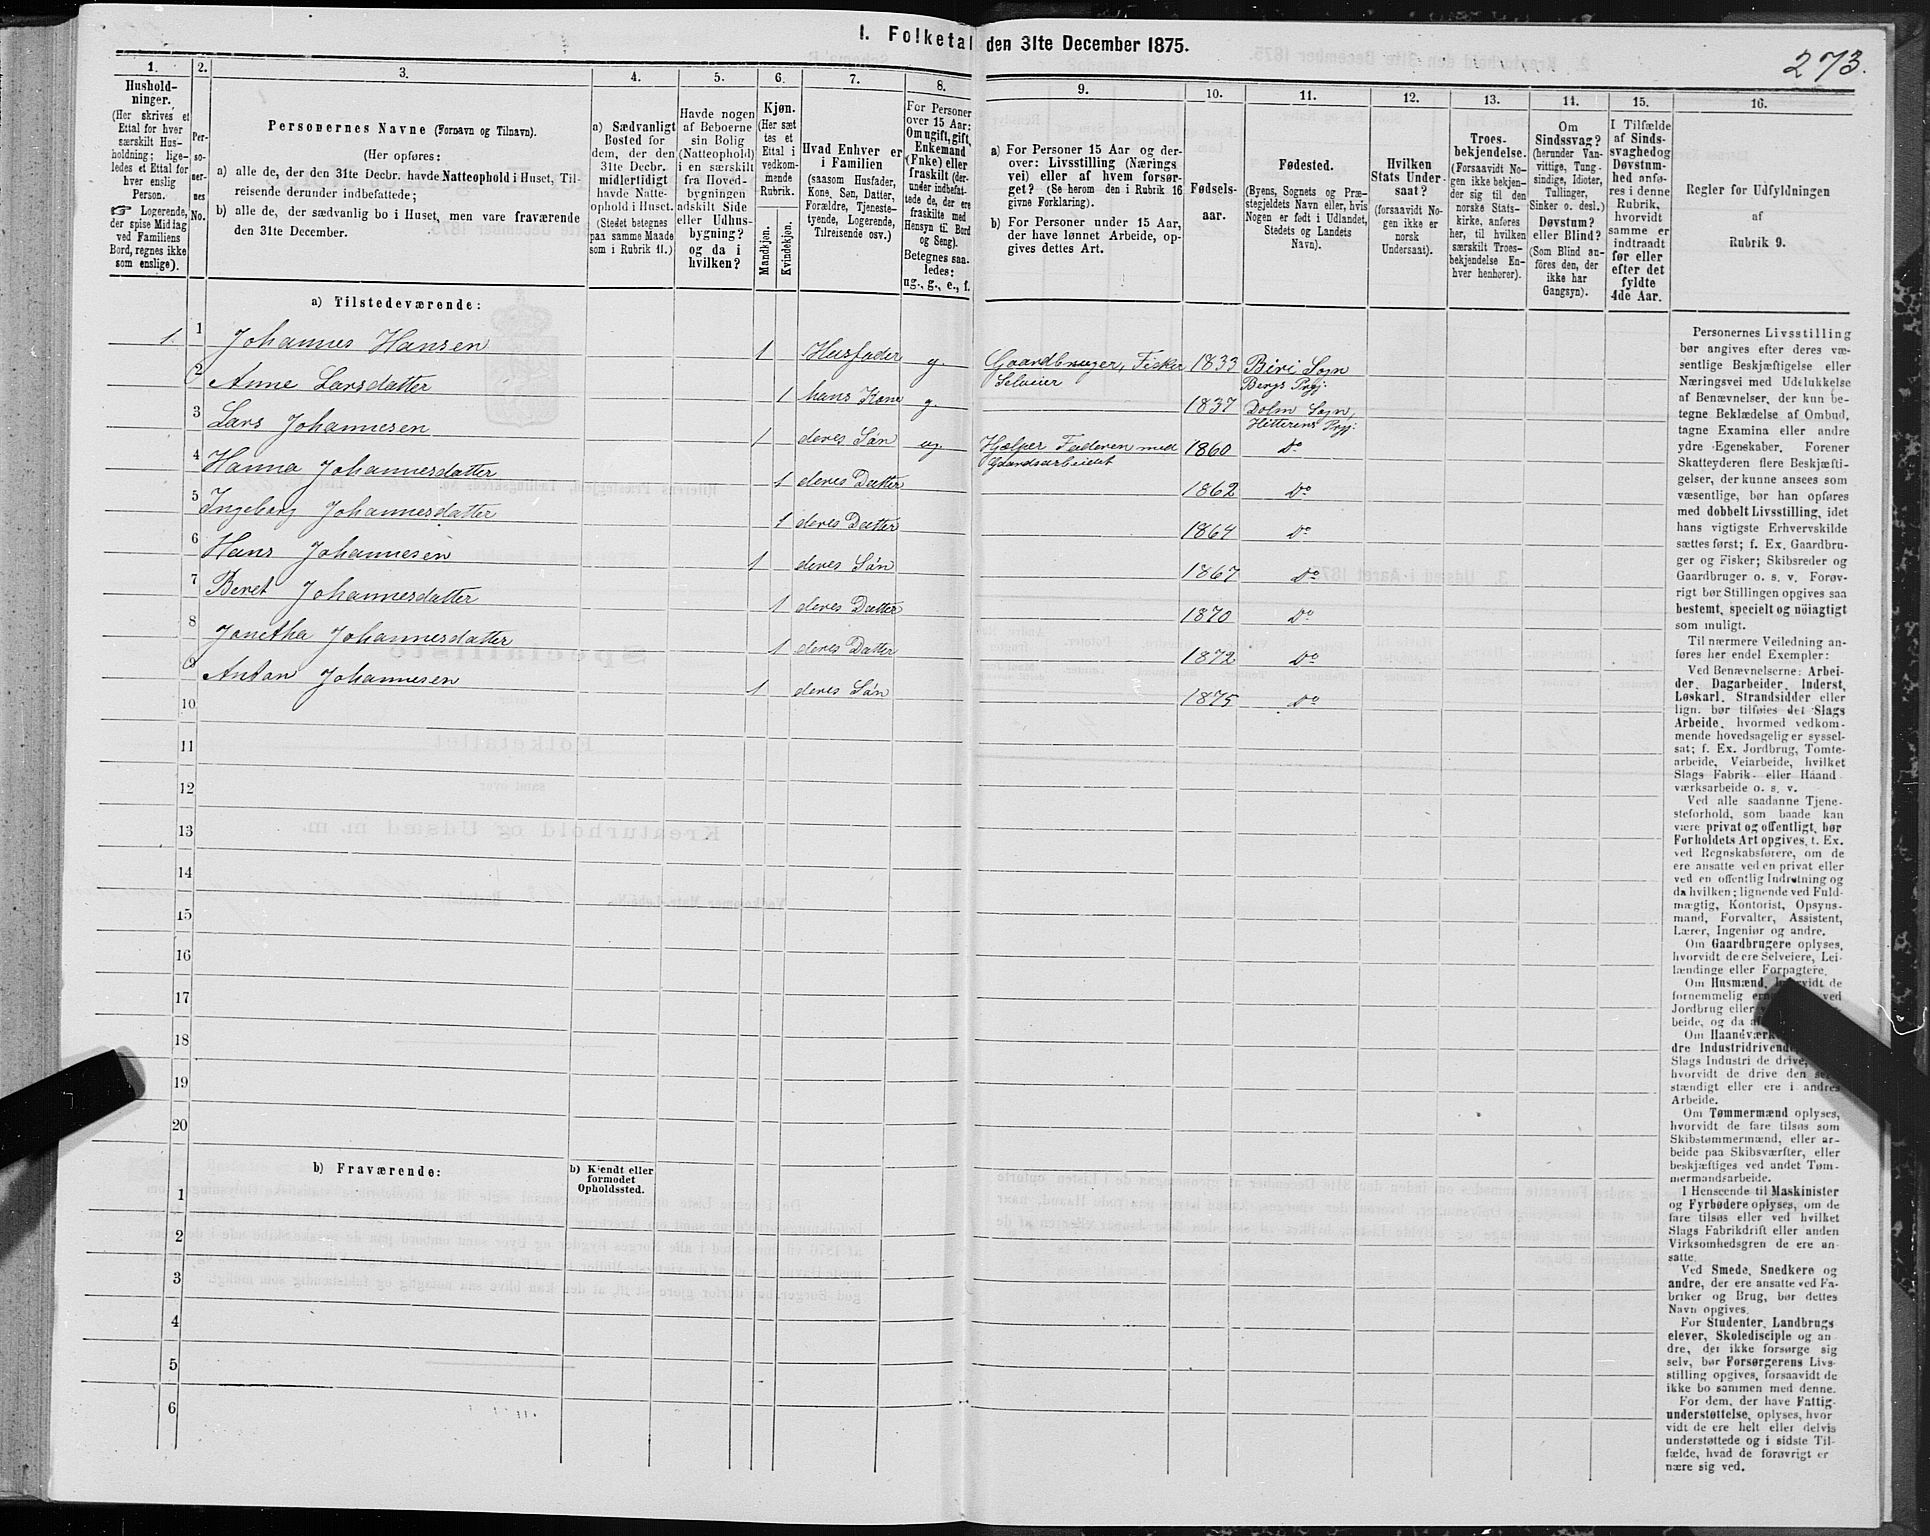 I. Folketal den 31te December 1875.
273.
1.
Hushold-
ninger.
(Her skrives et
Ettal for hver
særskilt Hus-
holdning; lige-
ledes et Ettal for
hver enslig
Person.
☞ Logerende,
der spise Middag
ved Familiens
Bord, regnes ikke
som enslige).
2.
Per-
so-
ner-
nes
No.
3.
Personernes Navne (Fornavn og Tilnavn).
(Her opføres:
a) alle de, der den 31te Decbr. havde Natteophold i Huset, Til-
reisende derunder indbefattede;
b) alle de, der sædvanlig bo i Huset, men vare fraværende
den 31te December.
4.
a) Sædvanligt
Bosted for
dem, der den
31te Decbr.
midlertidigt
havde Natte-
ophold i Huset.
(Stedet betegnes
paa samme Maade
som i Rubrik 11.)
5.
Havde nogen
af Beboerne
sin Bolig
(Natteophold)
i en særskilt
fra Hoved-
bygningen
adskilt Side
eller Udhus-
bygning?
og da i
hvilken?
6.
Kjøn.
(Her sæt
tes et
Ettal i
vedkom-
mende
Rubrik.
Mandkjøn.
Kvindekjøn.
7.
Hvad Enhver er
i Familien
(saasom Husfader,
Kone, Søn, Datter,
Forældre, Tjeneste-
tyende, Logerende,
Tilreisende osv.)
8.
For Personer
over 15 Aar:
Om ugift, gift,
Enkemand
(Enke) eller
fraskilt (der-
under indbefat-
tede de, der ere
fraskilte med
Hensyn til Bord
og Seng).
Betegnes saa-
ledes:
ug., g., e., f.
9.
a) For Personer 15 Aar og der-
over: Livsstilling (Nærings
vei) eller af hvem forsør-
get? (Se herom den i Rubrik 16
givne Forklaring).
b) For Personer under 15 Aar,
der have lønnet Arbeide, op-
gives dettes Art.
10.
Fødsels-
aar.
11.
Fødested.
(Byens, Sognets og Præ-
stegjeldets Navn eller, hvis
Nogen er født i Udlandet,
Stedets og Landets
Navn).
12.
Hvilken
Stats Under
saat?
(forsaavidt No-
gen ikke er
norsk
Undersaat).
13.
Troes-
bekjendelse.
(Forsaavidt No-
gen ikke bekjen-
der sig til den
norske Stats-
kirke, anføres
her, til hvilken
særskilt Troes-
bekjendelse En-
hver henhører).
14.
Om
Sindssvag?
(herunder Van-
vittige, Tung-
sindige, Idioter,
Tullinger,
Sinker o. desl.)
Døvstum?
eller Blind?
(Som Blind an-
føres den, der
ikke har
Gangsyn).
15.
I Tilfælde
af Sinds-
svaghed og
Døvstum-
hed anfø-
res i denne
Rubrik,
hvorvidt
samme er
indtraadt
før eller
efter det
fyldte
4de Aar.
16.
Regler for Udfyldningen
af
Rubrik 9.
a) Tilstedeværende:
1. 1 Johannes Hansen 1 Husfader g. Gaardbruger, Fisker Selveier 1833 Biri Sogn Bergs Prgj:
2 Anne Larsdatter 1 hans Kone g. 1837 Dolm Sogn, Hitterens Prgj:
3 Lars Johannesen 1 deres Søn ug. Hjelper Faderen med Gaardsarbeidet 1860 Do
4 Hanna Johannesdatter 1 deres Datter 1862 Do
5 Ingeborg Johannesdatter 1 deres Datter 1864 Do
6 Hans Johannesen 1 deres Søn 1867 Do
7 Beret Johannesdatter 1 deres Datter 1870 Do
8 Jonetha Johannesdatter 1 deres Datter 1872 Do
9 Anton Johannesen 1 deres Søn 1875 Do
10
11
12
13
14
15
16
17
18
19
20
b) Fraværende:
b) Kjendt eller
formodet
Opholdssted.
1
2
3
4
5
6
Personernes Livsstilling
bør angives efter deres væ-
sentlige Beskjæftigelse eller
Næringsvei med Udelukkelse
af Benævnelser, der kun be-
tegne Beklædelse af Ombud,
tagne Examina eller andre
ydre Egenskaber. Forener
Skatteyderen flere Beskjæfti-
gelser, der kunne ansees som
væsentlige, bør han opføres
med dobbelt Livsstilling, idet
hans vigtigste Erhvervskilde
sættes først; f. Ex. Gaardbru-
ger og Fisker; Skibsreder og
Gaardbruger o. s. v. Forøv-
rigt bør Stillingen opgives saa
bestemt, specielt og nöiagtigt
som muligt.
Til nærmere Veiledning an-
føres her endel Exempler:
Ved Benævnelserne: Arbei-
der, Dagarbeider, Inderst,
Løskarl, Strandsidder eller
lign. bør tilføies det Slags
Arbeide, hvormed vedkom-
mende hovedsagelig er syssel-
sat; f. Ex. Jordbrug, Tomte-
arbeide, Veiarbeide, hvilket
Slags Fabrik- eller Haand
værksarbeide o. s. v.
Ved alle saadanne Tjene-
steforhold, som baade kan
være privat og offentligt, bør
Forholdets Art opgives, f. Ex.
ved Regnskabsførere, om de
ere ansatte ved en privat eller
ved en offentlig Indretning og
da hvilken; lignende ved Fuld-
mægtig, Kontorist, Opsyns-
mand, Forvalter, Assistent,
Lærer, Ingeniør og andre.
Om Gaardbrugere oplyses,
hvorvidt de ere Selveiere, Lei-
lændinge eller Forpagtere.
Om Husmænd,
fornemmelig
Jordbrug eller
beide, og da
Om Haandværkere
dre Industridrivende
Slags Industri de drive,
hvorvidt de drive den
stændigt eller ere i andres
Arbeide.
Om Tømmermænd oplyses,
hvorvidt de fare tilsøs som
Skibstømmermænd, eller ar-
beide paa Skibsværfter, eller
beskjæftiges ved andet Tøm-
mermandsarbeide.
I Henseende til Maskinister
og Fyrbødere oplyses, om de
fare tilsøs eller ved hvilket
Slags Fabrikdrift eller anden
Virksomhedsgren de ere an-
satte.
Ved Smede, Snedkere og
andre, der ere ansatte ved Fa-
briker og Brug, bør dettes
Navn opgives.
For Studenter, Landbrugs
elever, Skoledisciple og an
dre, der ikke forsørge sig
selv, bør Forsørgerens Livs-
stilling opgives, forsaavidt de
ikke bo sammen med denne.
For dem, der have Fattig-
understøttelse, oplyses, hvor
vidt de ere helt eller delvis
understøttede og i sidste Til-
fælde, hvad de forøvrigt er
nære sig ved.